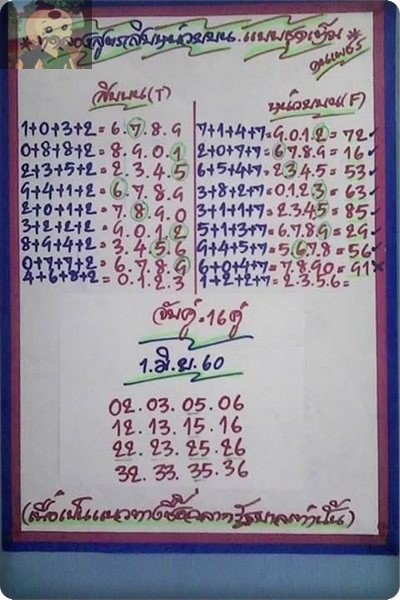 สูตรสิบหน่วยบน
สิบบน(T) หน่วยบน(F)
1+0+3+2= 6.7.8.9 7+1+4+7=9.0.1.2=72✓
0+8+8+2= 8.9.0.1 2+0+7+7=6.7.8.9=16✓
2+3+5+2= 2.3.4.5 6+5+4+7=2.3.4.5=53✓
9+4+1+2= 6.7.8.9 3+8+2+7=0.1.2.3=63✓
2+0+1+2= 7.8.9.0 3+1+1+7=2.3.4.5=85✓
3+2+2+2= 9.0.1.2 5+1+3+7=6.7.8.9=29✓
8+9+4+2= 3.4.5.6 9+4+5+7=5.6.7.8=56✓
0+7+7+2= 6.7.8.9 6+0+4+7=7.8.90=91×
4+6+8+2= 0.1.2.3 1+2+2+7=2.3.5.6=
จับคู่=16คู่
1.มิ.ย.60
02.03.05.06
12.13.15.16
22.23.25.26
32.33.35.36
(เพื่อเป็นแนวทางซื้อสลากรัฐบาลเท่านั้น)